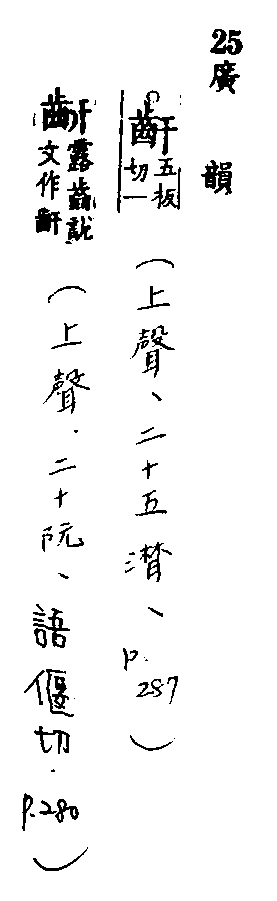 25廣韻
齗五板切一(上聲、二十五潸、P.287)
齗露齒說文作齗(上聲．二十阮、語偃切．P.280)